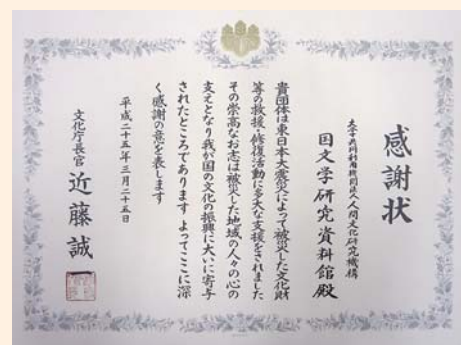 感謝状
大学共同利用機関法人人間文化研究機構
国文学研究資料館殿
貴団体は東日本大震災によって被災した文化財
等の救援・修復活動に多大な支援をされました
その崇高なお志は被災した地域の人々の心の
支えとなり我が国の文化の振興に大いに寄与
されたところであります よってここに深
く感謝の意を表します
平成二十五年三月二十五日
文化庁長官 近藤誠一